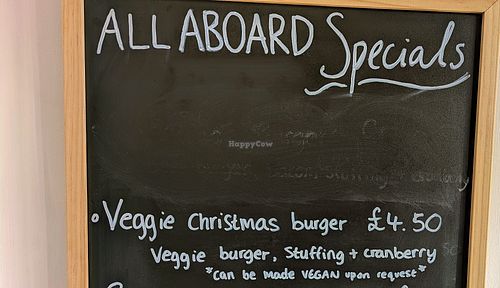 ALL ABOARD Specials
HappyCow
• Veggie Christmas burger £4.50
Veggie burger, Stuffing + cranberry
*Can be made VEGAN upon request*